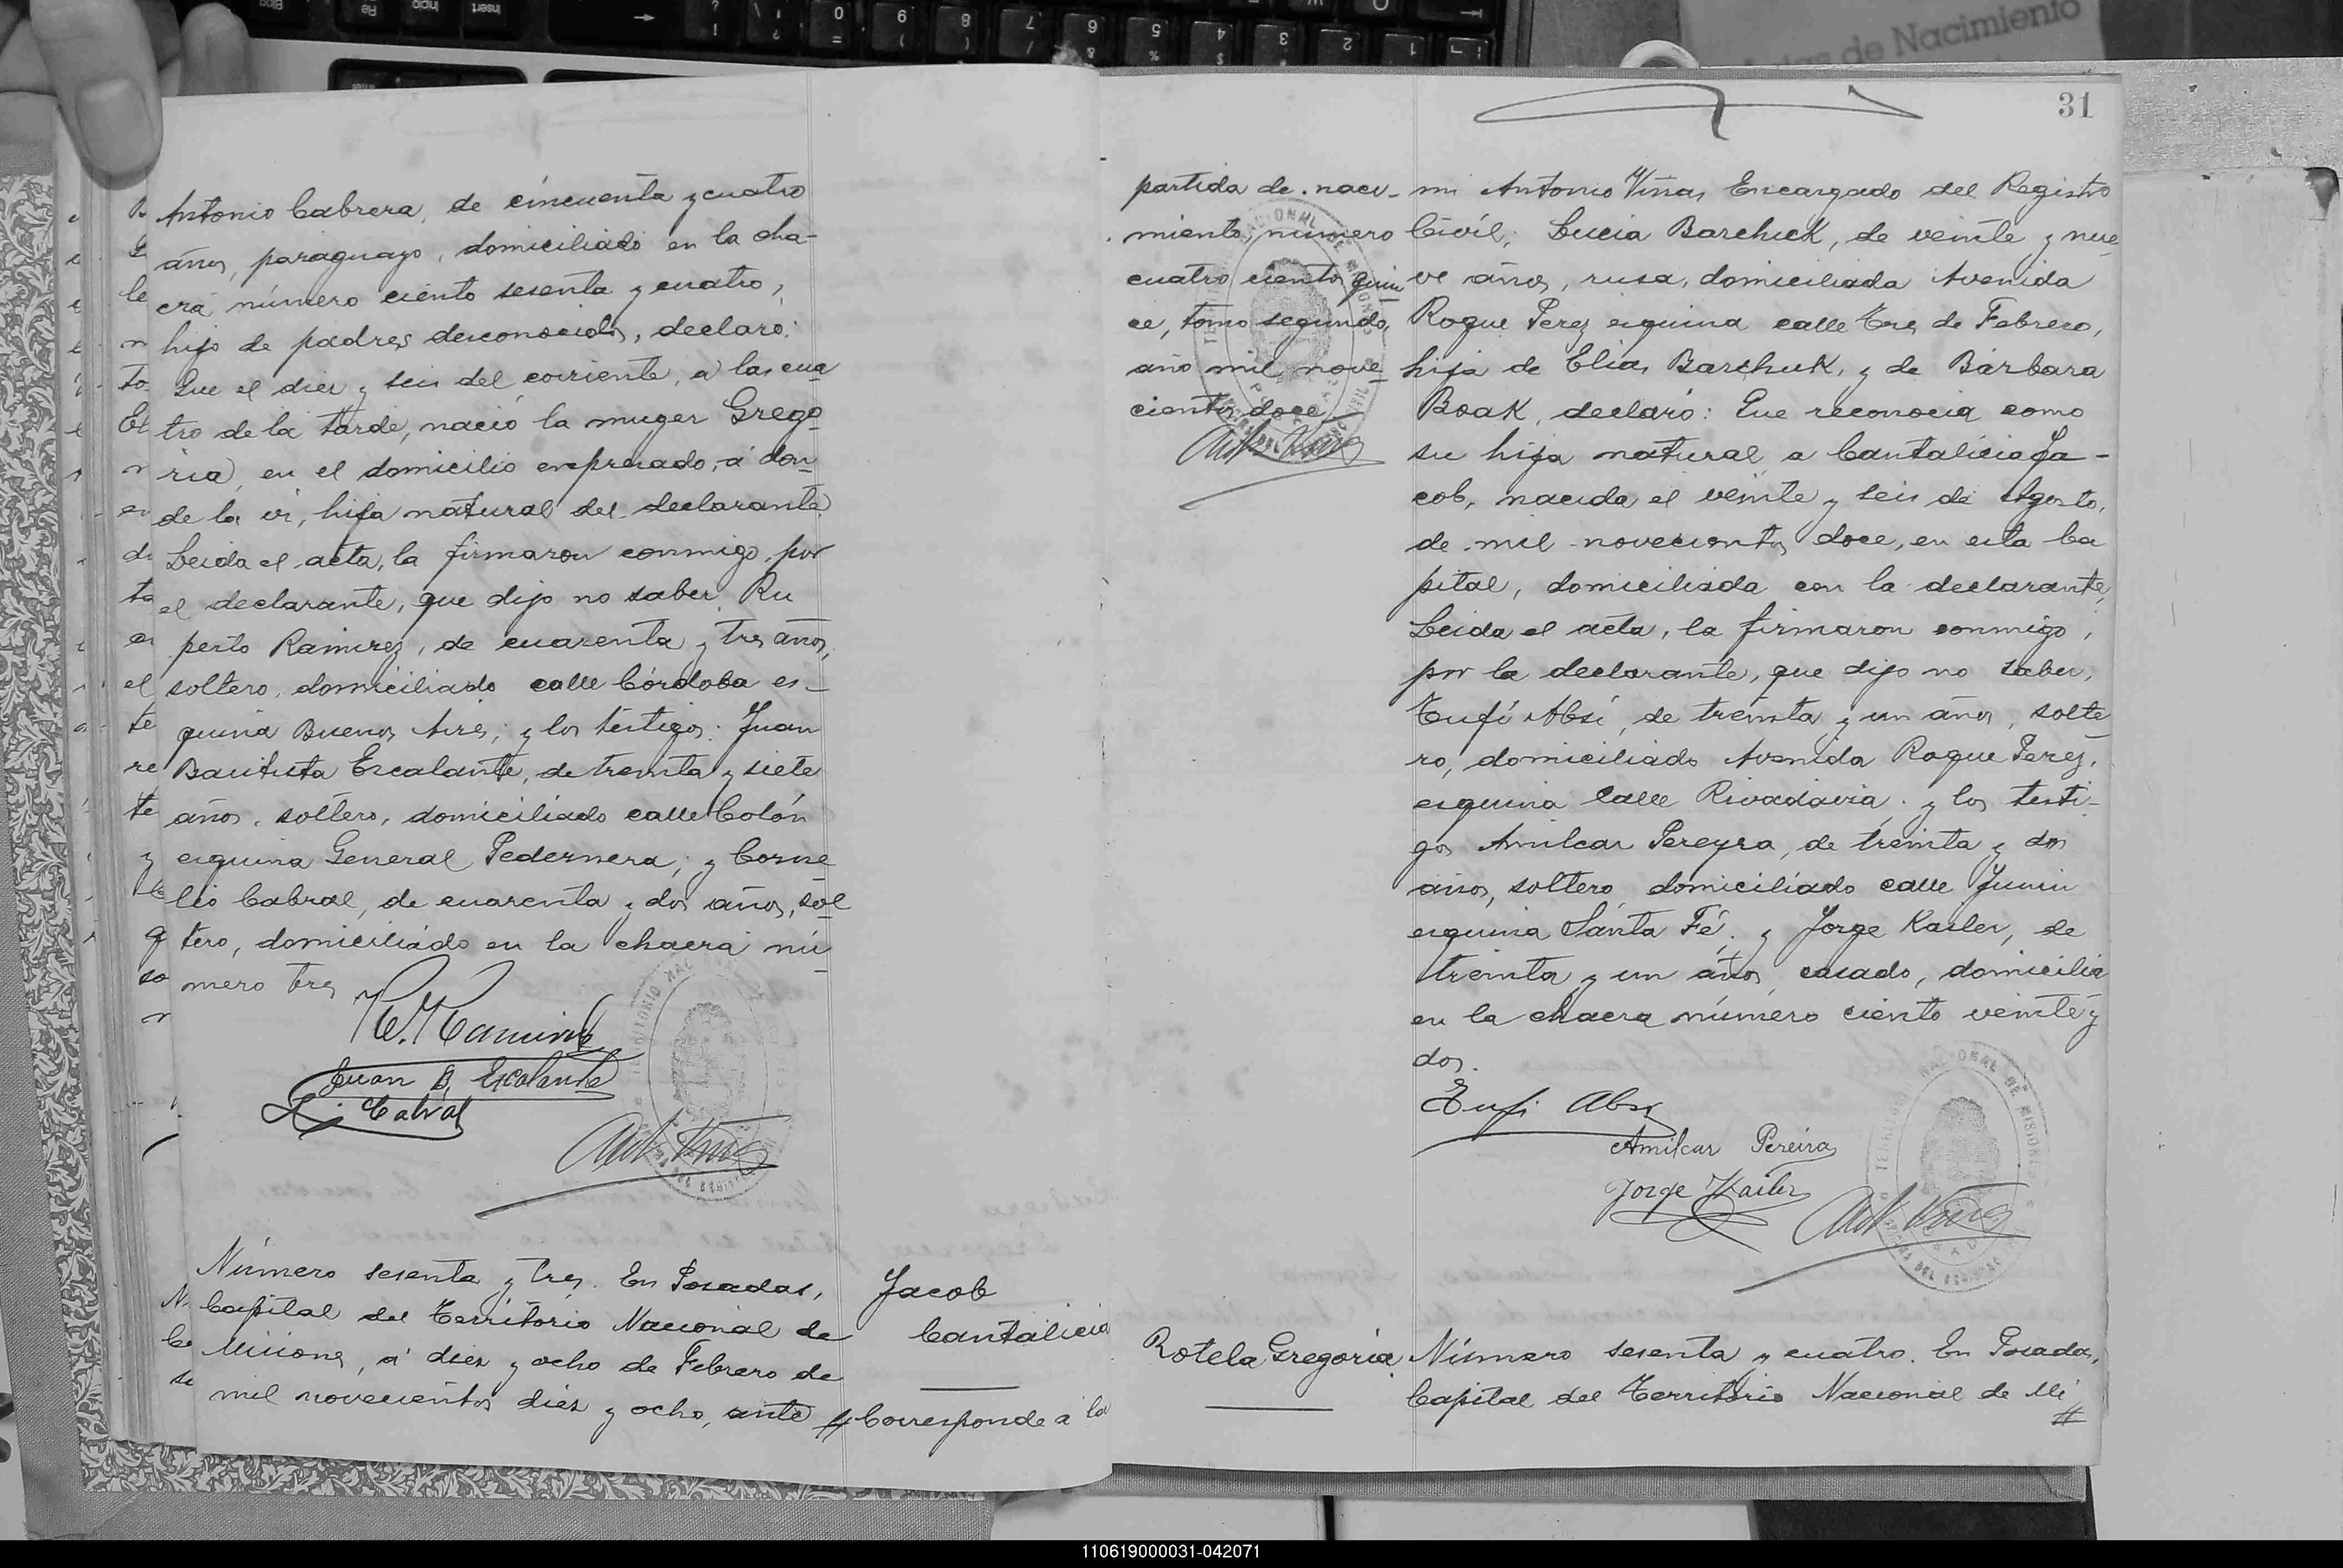 Antonio Cabrera, de cincuenta y cuatro
años, paraguayo, domiciliado en la cha-
cra número ciento sesenta y cuatro,
hijo de padres desconocidos, declaró:
Que el diez y seis del corriente, a las cua
tro de la tarde, nació la muger Grego
ria, en el domicilio expresado, á don
de la ví, hija natural del declarante
Leida el acta, la firmaron conmigo, por
el declarante, que dijo no saber, Ru
perto Ramirez, de cuarenta y tres años,
soltero, domiciliado calle Córdoba es-
quina Buenos Aires; y los testigos: Juan
Bautista Escalante, de treinta y siete
años, soltero, domiciliado calle Colón
esquina General Pedernera; y Corne
lio Cabral, de cuarenta y dos años, sol
tero, domiciliado en la chacra nú
mero tres
Juan B. Escalante
Cabral
Número sesenta y tres. En Posadas,
Capital del Territorio Nacional de
Misiones, á diez y ocho de Febrero de
mil novecientos diez y ocho, ante
Jacob
Cantalicia
Corresponde a la
31
partida de naci-
miento, número
cuatro cientos quin
ce, tomo segundo,
año mil nove
cientos doce
mi Antonio Viñas Encargado del Registro
Civil; Lucia Barchuk, de veinte y nue
ve años, rusa, domiciliada Avenida
Roque Perez esquina calle Tres de Febrero,
hija de Elias Barchuk, y de Bárbara
Boak, declaró: Que reconocia como
su hija natural a Cantalicia Ja-
cob, nacida el veinte y seis de Agosto,
de mil novecientos doce, en esta Ca
pital, domiciliada con la declarante,
Leida el acta, la firmaron conmigo,
por la declarante, que dijo no saber,
Tufí Absí, de treinta y un años, solte
ro, domiciliado Avenida Roque Perez,
esquina calle Rivadavia; y los testi-
gos Amilcar Pereyra, de treinta y dos
años, soltero, domiciliado calle Junin
esquina Santa Fé; y Jorge Kasler, de
treinta y un años, casado, domicilia
en la chacra número ciento veinte y
dos.
Amilcar Pereira
Jorge
Rotela Gregoria
Número sesenta y cuatro. En Posadas,
Capital del Territorio Nacional de Mi
110619000031-042071